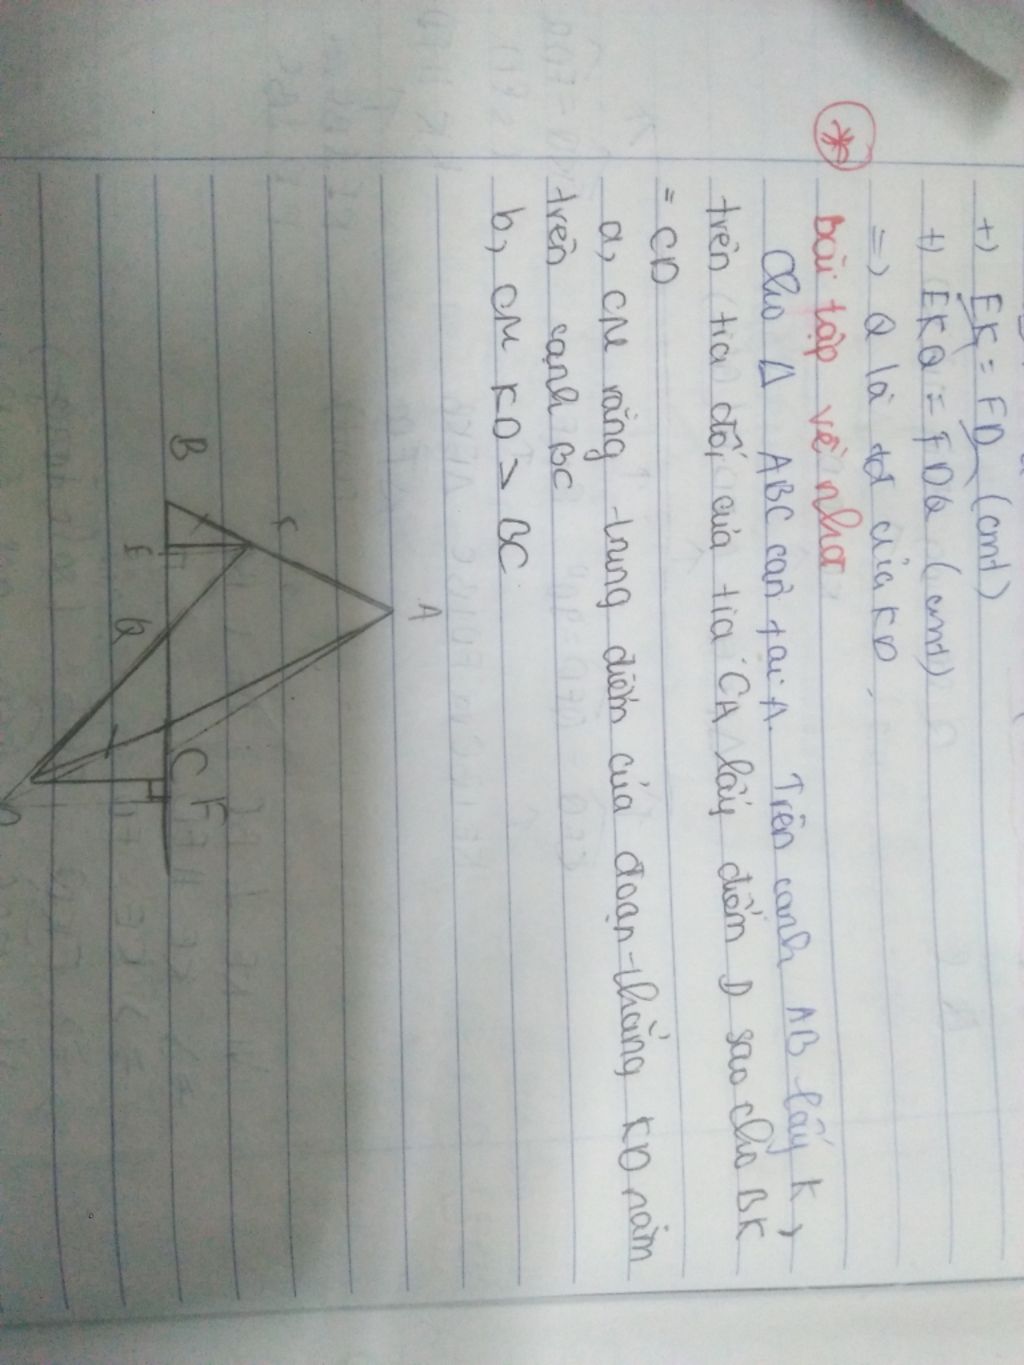 +) EK = FD (cmt)
+) EKQ = FDQ (cmt)
=> Q là tđ của KD
* bài tập về nhà
Cho Δ ABC cân tại A. Trên cạnh AB lấy K,
trên tia đối của tia CA lấy điểm D sao cho BK
= CD
a, CM rằng trung điểm của đoạn thẳng KD nằm
trên cạnh BC
b, CM KD > BC
A
B
E
Q
C
F